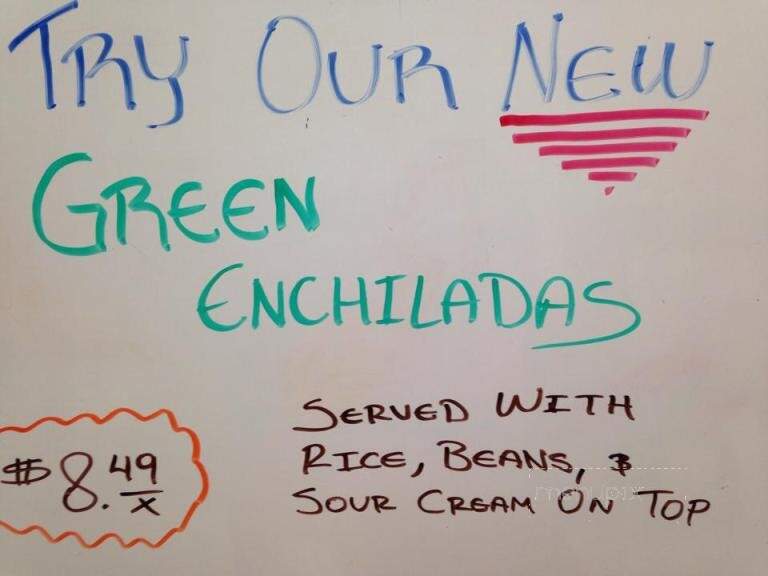 TRY OUR NEW
GREEN
ENCHILADAS
SERVED WITH
RICE, BEANS, &
SOUR CREAM ON TOP
$8.49/x
menupix